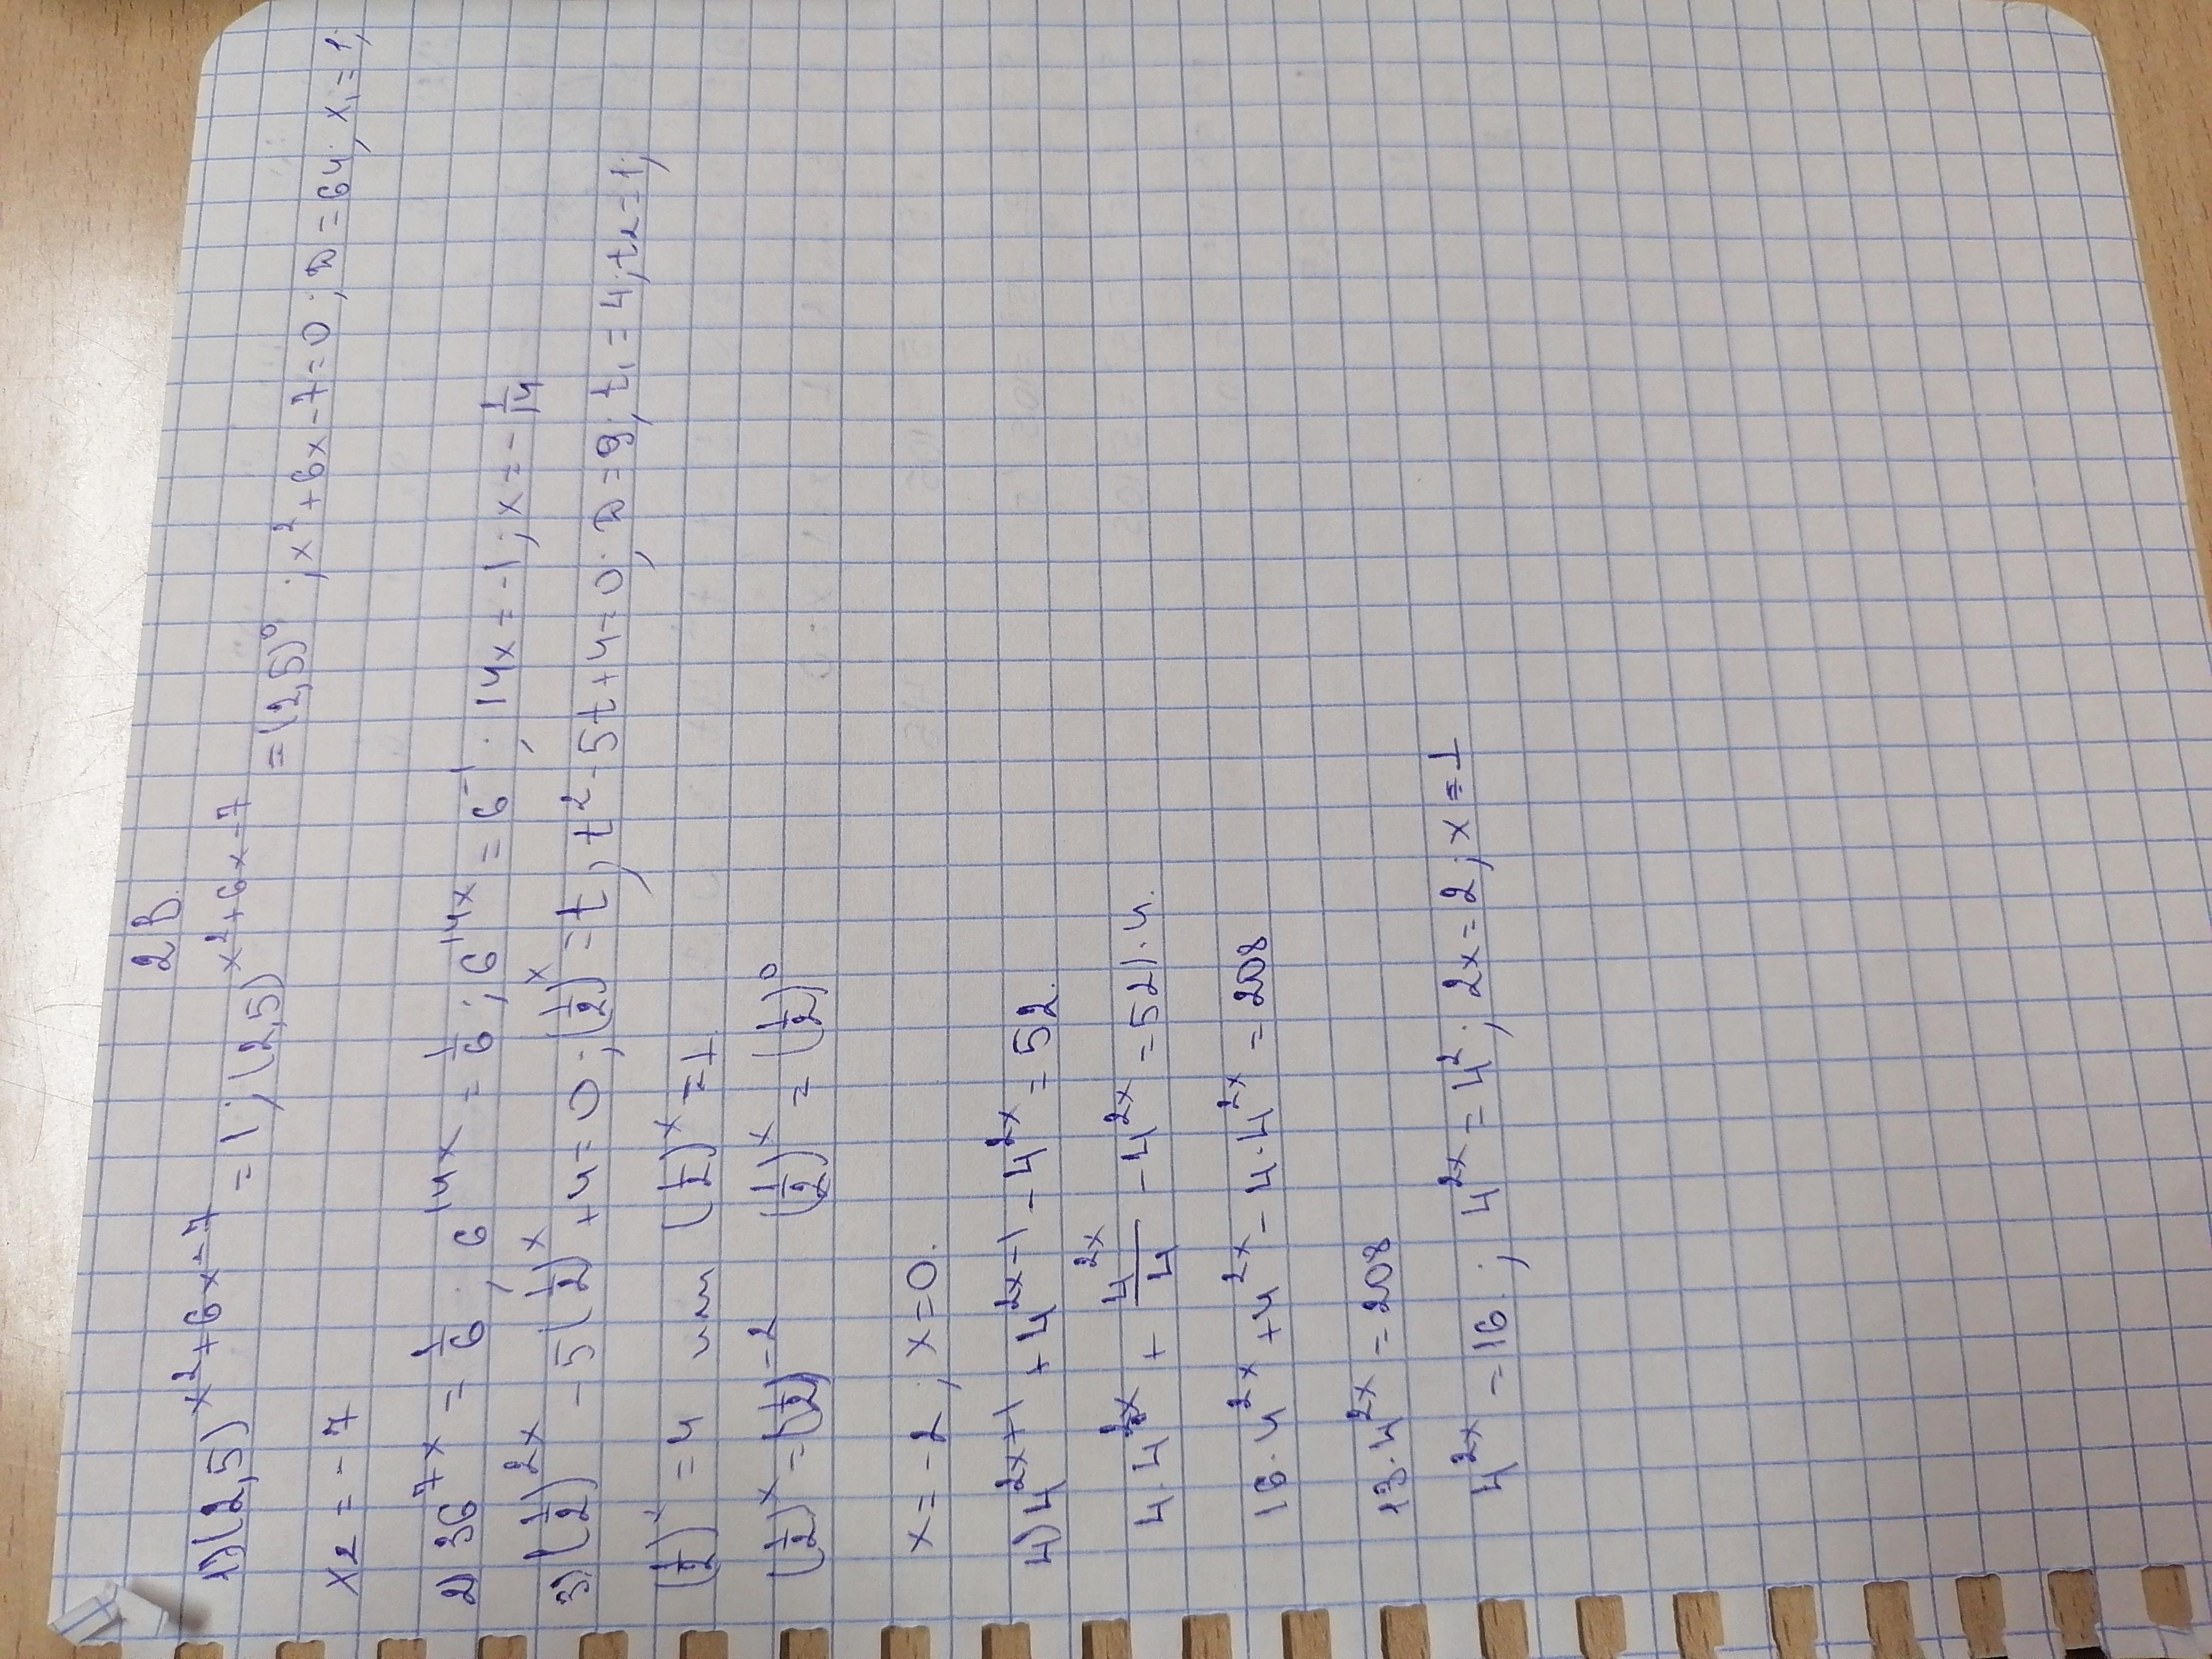 2В.
1) (2,5)^{x²+6x-7} = 1; (2,5)^{x²+6x-7} = (2,5)⁰; x²+6x-7=0; D=64; x₁=1;
x₂ = -7
2) 36^{7x} = 1/6; 6^{14x} = 1/6; 6^{14x} = 6^{-1}; 14x = -1; x = -1/14
3) (1/2)^{2x} - 5(1/2)^x + 4 = 0; (1/2)^x = t, t² - 5t + 4 = 0; D = 9; t₁ = 4; t₂ = 1;
(1/2)^x = 4 или (1/2)^x = 1
(1/2)^x = (1/2)^{-2} (1/2)^x = (1/2)⁰
x = -2; x = 0.
4) 4^{2x+1} + 4^{2x-1} - 4^{2x} = 52.
4·4^{2x} + 4^{2x}/4 - 4^{2x} = 52|·4.
16·4^{2x} + 4^{2x} - 4·4^{2x} = 208
13·4^{2x} = 208
4^{2x} = 16; 4^{2x} = 4²; 2x = 2; x = 1